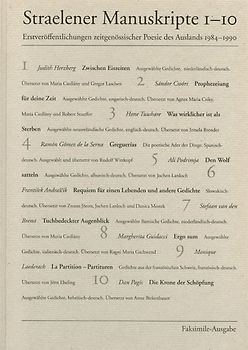 Straelener Manuskripte 1–10
Erstveröffentlichungen zeitgenössischer Poesie des Auslands 1984–1990
1 Judith Herzberg Zwischen Eiszeiten Ausgewählte Gedichte, niederländisch-deutsch.
Übersetzt von Maria Csollány und Gregor Laschen 2 Sándor Csoóri Prophezeiung
für deine Zeit Ausgewählte Gedichte, ungarisch-deutsch. Übersetzt von Agnes Maria Csiky,
Maria Csollány und Robert Stauffer 3 Hone Tuwhare Was wirklicher ist als
Sterben Ausgewählte neuseeländische Gedichte, englisch-deutsch. Übersetzt von Irmela Brender
4 Ramón Gómez de la Serna Greguerías Die poetische Ader der Dinge. Spanisch-
deutsch. Ausgewählt und übersetzt von Rudolf Wittkopf 5 Ali Podrimja Den Wolf
satteln Ausgewählte Gedichte, albanisch-deutsch. Übersetzt von Hans-Joachim Lanksch 6
František Andraščík Requiem für einen Lebenden und andere Gedichte Slowakisch-
deutsch. Übersetzt von Zoran Jösten, Jochen Lanksch und 7 Stefaan van den
Bremt Tuchbedeckter Augenblick Ausgewählte flämische Gedichte, niederländisch-deutsch.
Übersetzt von Maria Csollány 8 Margherita Guidacci Ergo sum Ausgewählte
Gedichte, italienisch-deutsch. Übersetzt von Ragni Maria Gschwend 9 Monique
Laederach La Partition – Partituren Gedichte aus der französischen Schweiz, französisch-deutsch.
Übersetzt von Jörn Ebeling 10 Dan Pagis Die Krone der Schöpfung
Ausgewählte Gedichte, hebräisch-deutsch. Übersetzt von Anne Birkenhauer
Faksimile-Ausgabe